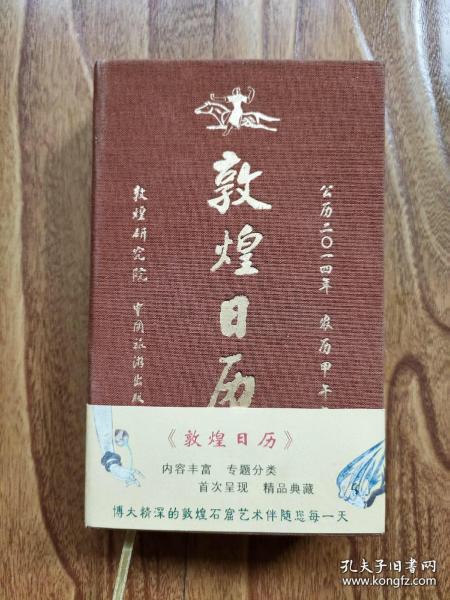 敦煌日历
公历二〇一四年 农历甲午
敦煌研究院 中国旅游出版
《敦煌日历》
内容丰富 专题分类
首次呈现 精品典藏
博大精深的敦煌石窟艺术伴随您每一天
孔夫子旧书网
www.kongfz.com